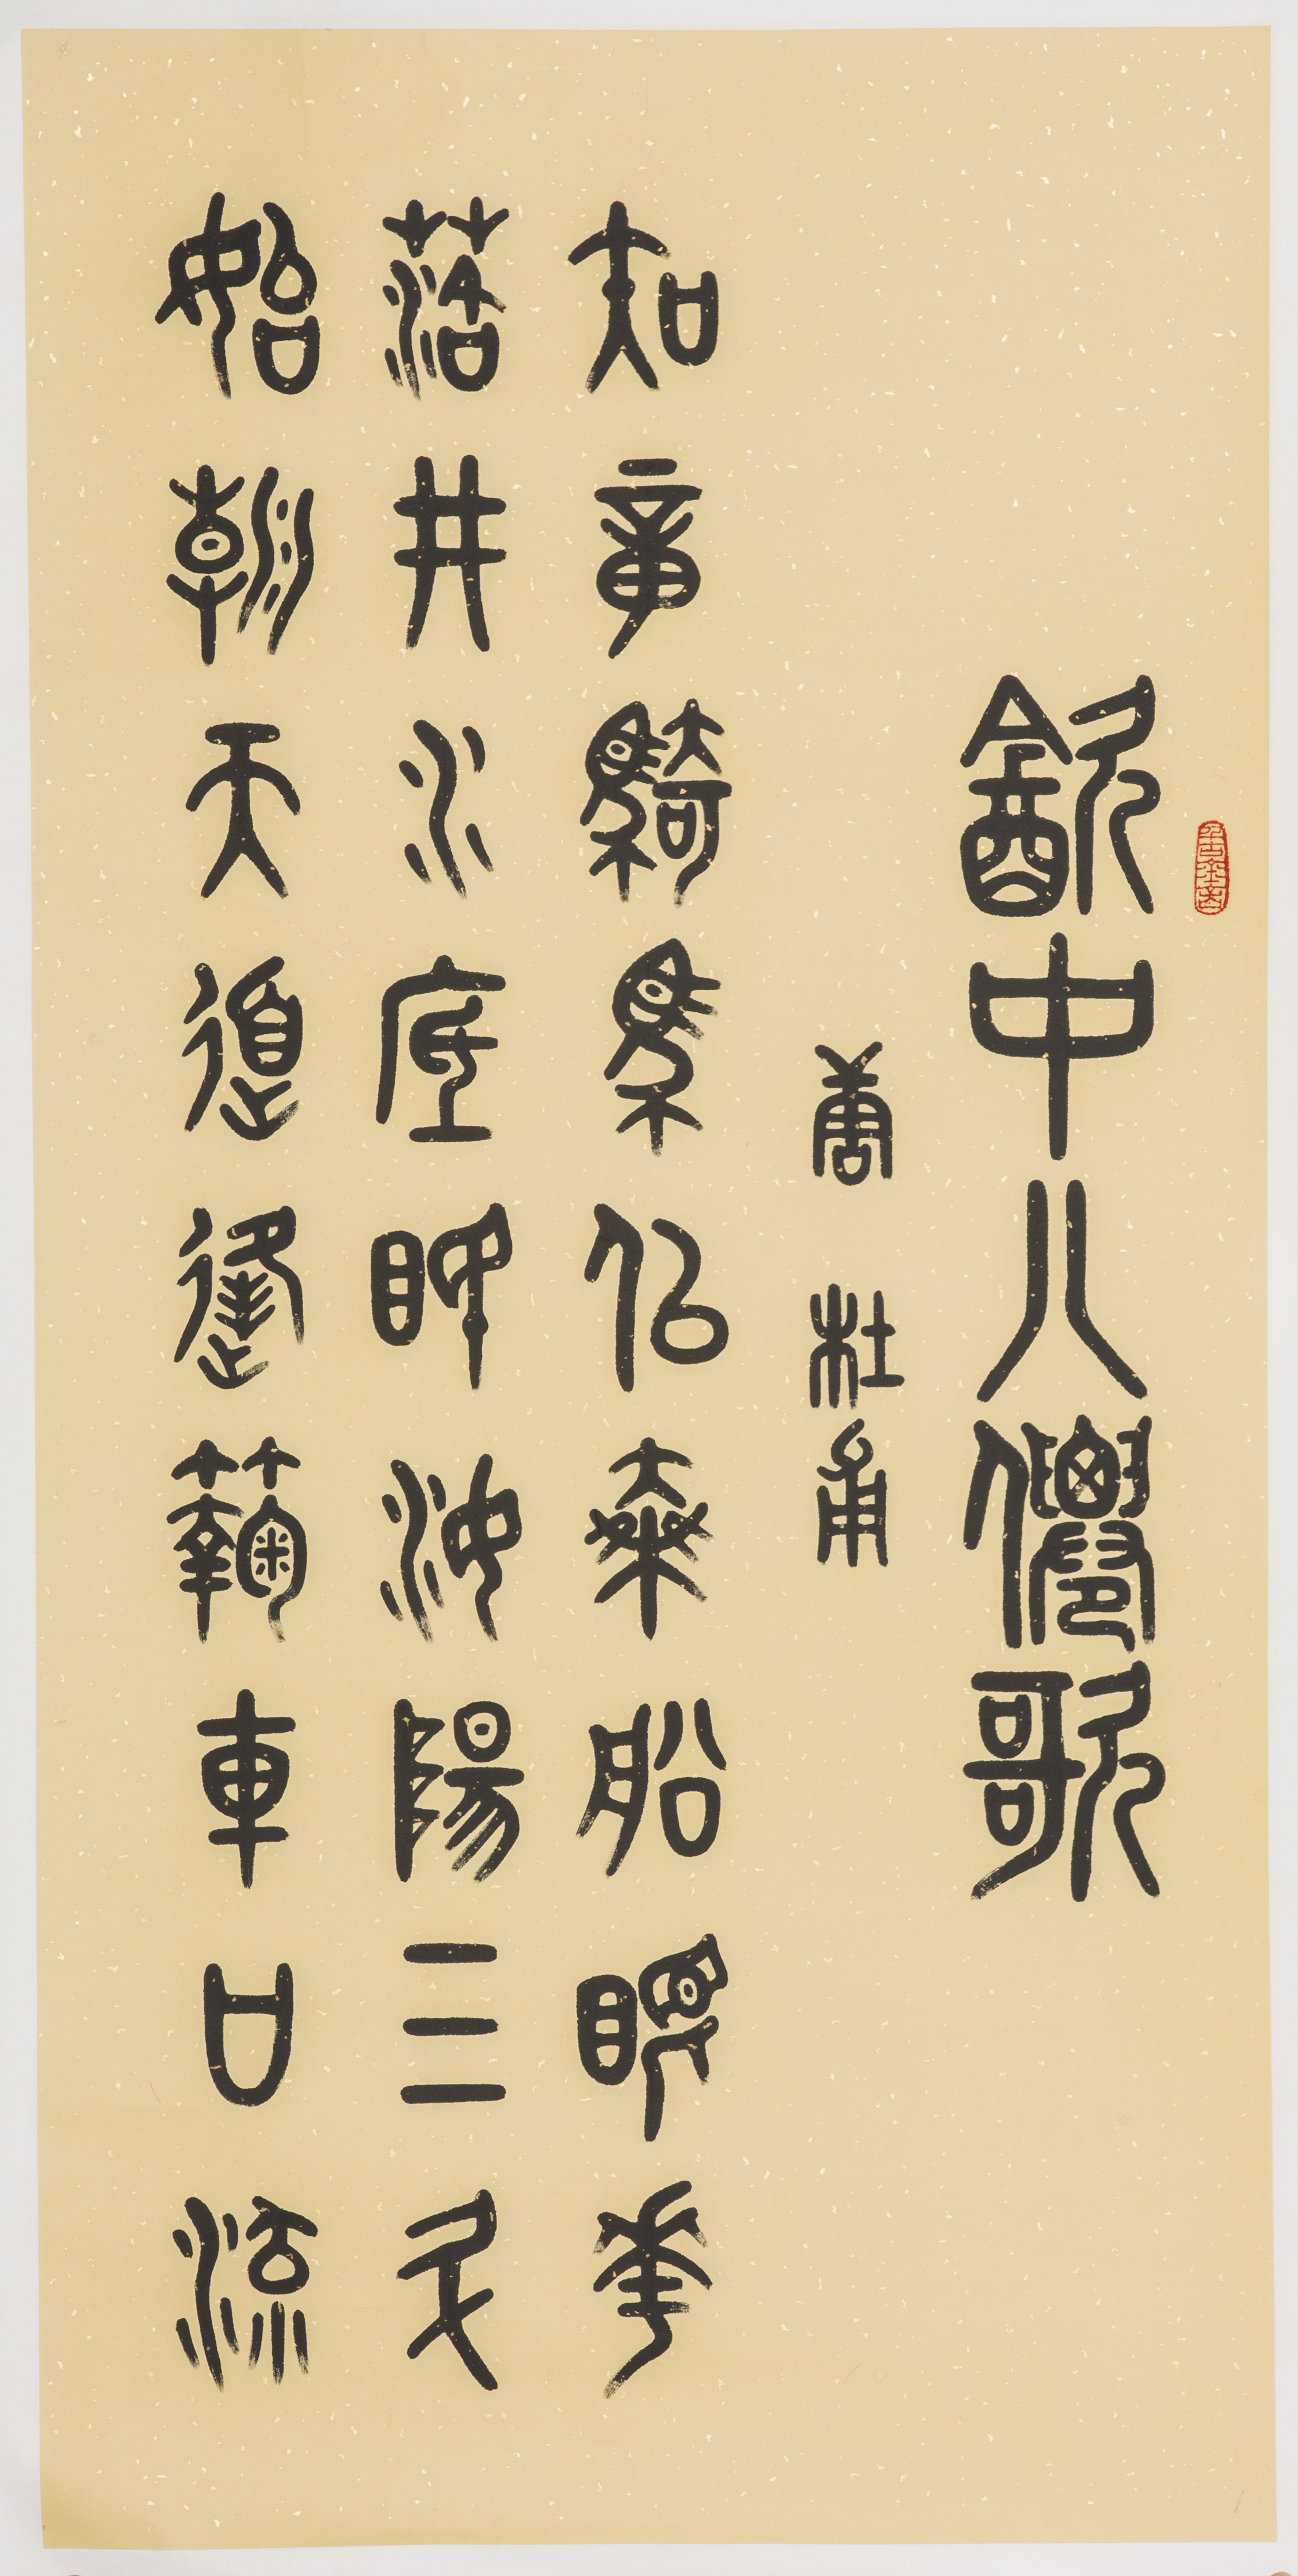 飲中八僊歌
唐 杜甫
知章騎馬似乘船眼花
落井水底眠汝陽三斗
始朝天道逢麴車口流